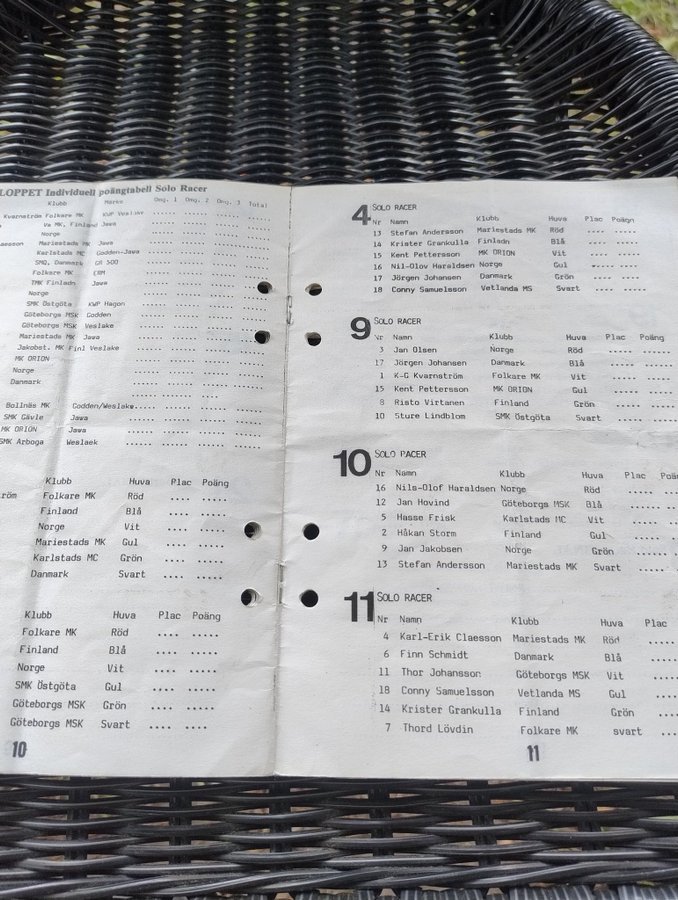 LOPPET Individuell poängtabell Solo Racer
Klubb Märke Omg. 1 Omg. 2 Omg. 3 Total
Kvarnström Folkare MK KWP Veslake .... .... .... ....
Va MK, Finland Jawa
Norge
aesson Mariestads MK Jawa
Karlstads MC Godden-Jawa
SMQ, Danmark GM 500
Folkare MK ERM
TMK Finladn Jawa
Norge
SMK Östgöta KWP Hagon
Göteborgs MSK Godden
Göteborgs MSK Veslake
Mariestads MK Jawa
Jakobst. MK Finl Veslake
MK ORION
Norge
Danmark
Bollnäs MK Godden/Weslake....
SMK Gävle Jawa
MK ORION Jawa
SMK Arboga Weslaek
Klubb Huva Plac Poäng
röm Folkare MK Röd .... .....
Finland Blå .... .....
Norge Vit .... .....
Mariestads MK Gul .... .....
Karlstads MC Grön .... .....
Danmark Svart .... .....
Klubb Huva Plac Poäng
Folkare MK Röd .... .....
Finland Blå .... .....
Norge Vit .... .....
SMK Östgöta Gul .... .....
Göteborgs MSK Grön .... .....
Göteborgs MSK Svart .... .....
10
4 SOLO RACER
Nr Namn Klubb Huva Plac Poäng
13 Stefan Andersson Mariestads MK Röd .... .....
14 Krister Grankulla Finladn Blå .... .....
15 Kent Pettersson MK ORION Vit .... .....
16 Nil-Olov Haraldsen Norge Gul .... .....
17 Jörgen Johansen Danmark Grön .... .....
18 Conny Samuelsson Vetlanda MS Svart .... .....
9 SOLO RACER
Nr Namn Klubb Huva Plac Poäng
3 Jan Olsen Norge Röd .... .....
17 Jörgen Johansen Danmark Blå .... .....
1 K-G Kvarnström Folkare MK Vit .... .....
15 Kent Pettersson MK ORION Gul .... .....
8 Risto Virtanen Finland Grön .... .....
10 Sture Lindblom SMK Östgöta Svart .... .....
10 SOLO RACER
Nr Namn Klubb Huva Plac Poän
16 Nils-Olof Haraldsen Norge Röd ....
12 Jan Hovind Göteborgs MSK Blå ....
5 Hasse Frisk Karlstads MC Vit ....
2 Håkan Storm Finland Gul ....
9 Jan Jakobsen Norge Grön ....
13 Stefan Andersson Mariestads MK Svart ....
11 SOLO RACER
Nr Namn Klubb Huva Plac
4 Karl-Erik Claesson Mariestads MK Röd ....
6 Finn Schmidt Danmark Blå ....
11 Thor Johansson Göteborgs MSK Vit ....
18 Conny Samuelsson Vetlanda MS Gul ....
14 Krister Grankulla Finland Grön ....
7 Thord Lövdin Folkare MK svart ....
11